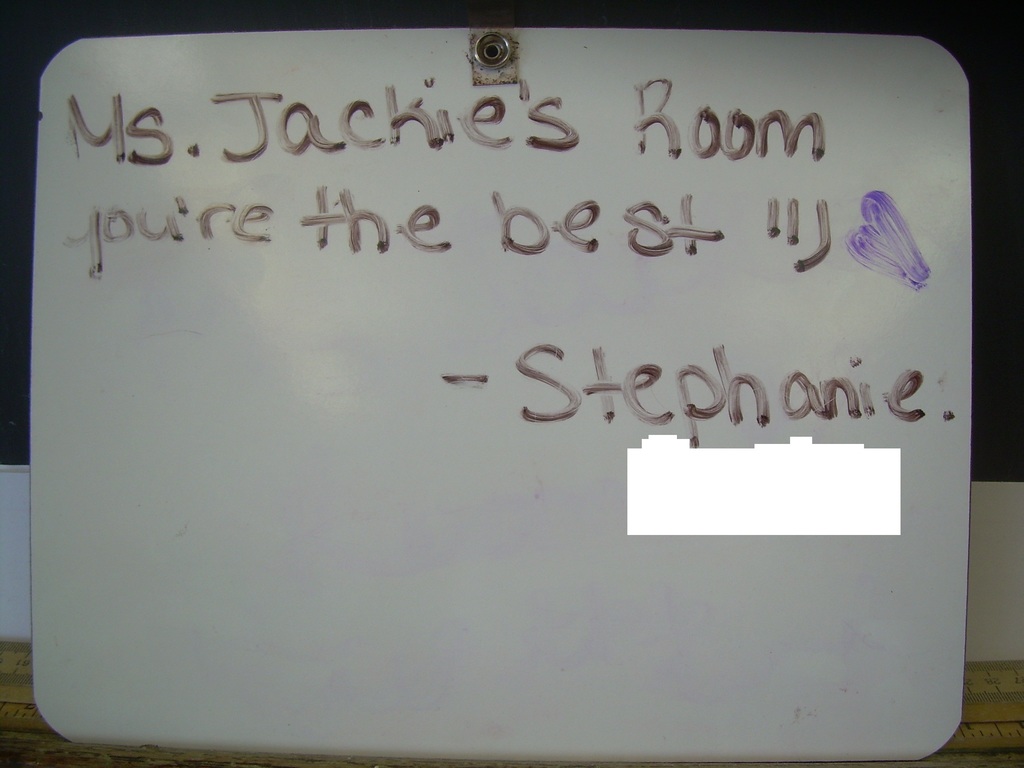 Ms. Jackie's Room
you're the best !!!
- Stephanie.